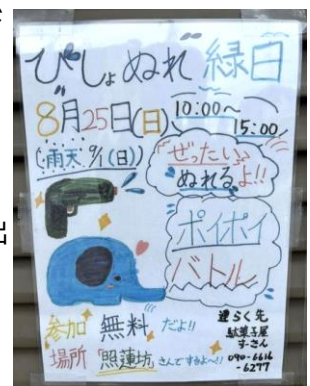 びしょぬれ縁日
8月25日(日) 10:00～15:00
(雨天 9/1(日))
ぜったい
ぬれるよ!!
ポイポイ
バトル
参加 無料 だよ!!
場所 照蓮坊さんですよ～!!
連らく先
駄菓子屋
すーさん
090-6616
-6277
出